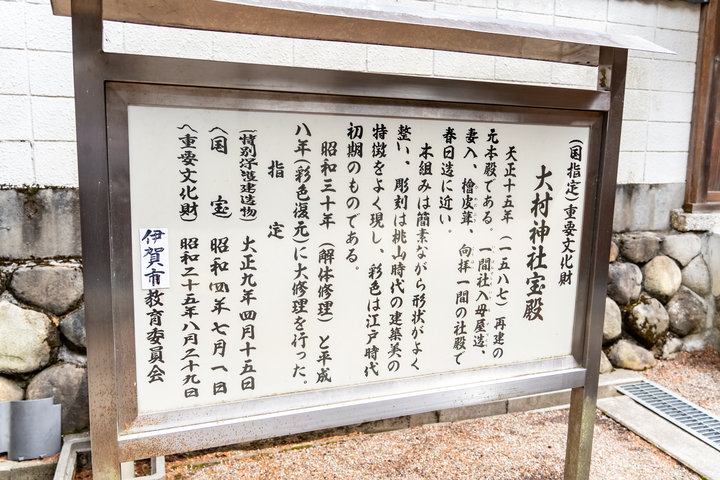 (国指定)重要文化財
大村神社宝殿
天正十五年(一五八七)再建の
元本殿である。一間社入母屋造、
妻入、檜皮葺、向拝一間の社殿で
春日造に近い。
木組みは簡素ながら形状がよく
整い、彫刻は桃山時代の建築美の
特徴をよく現し、彩色は江戸時代
初期のものである。
昭和三十年(解体修理)と平成
八年(彩色復元)に大修理を行った。
指定
(特別保護建造物)大正九年四月十五日
(国宝)昭和四年七月一日
(重要文化財)昭和二十五年八月二十九日
伊賀市教育委員会